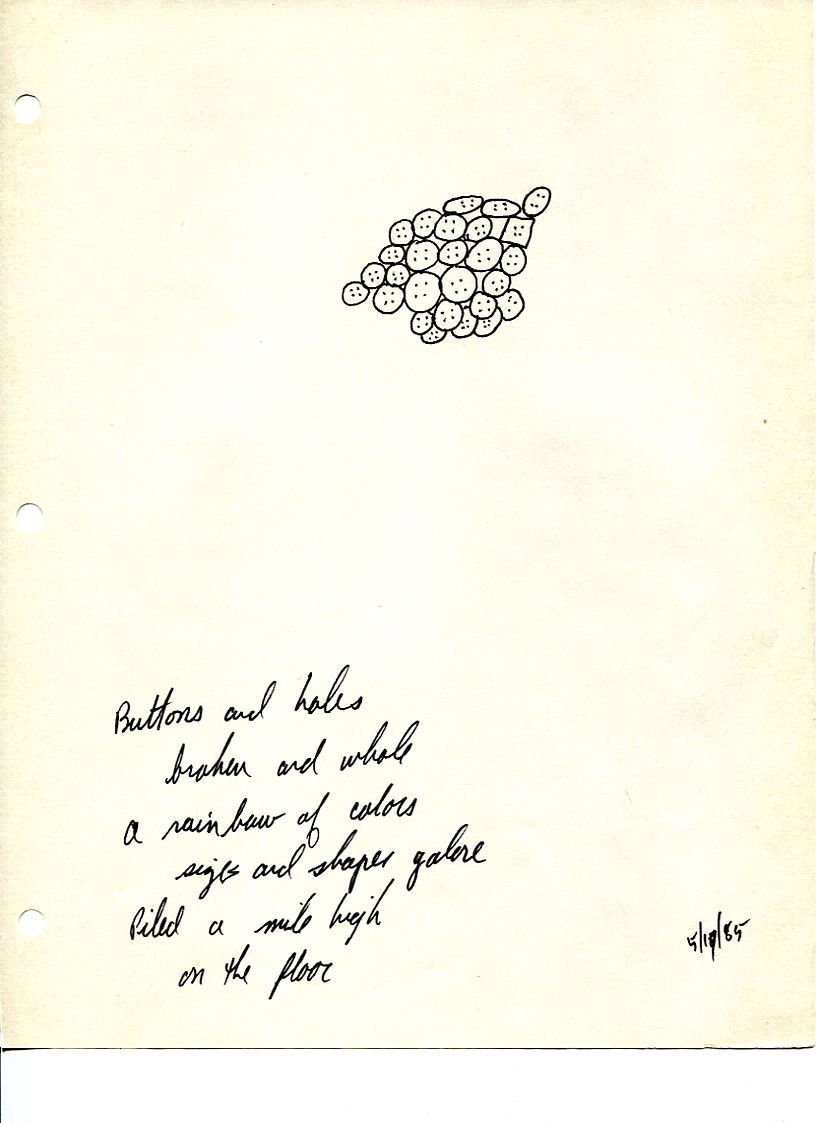 Buttons and holes
broken and whole
a rainbow of colors
sizes and shapes galore
Piled a mile high
on the floor